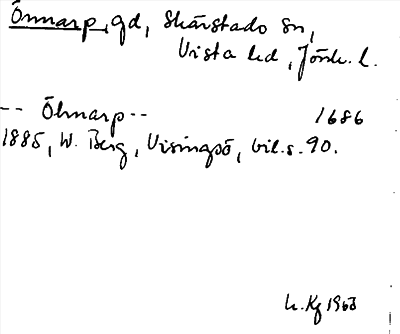 Önnarp, gd, Skärstads sn,
Vista hd, Jönk. l.
-- Öhnarp -- 1686
1885, W. Berg, Visingsö, bil. s. 90.